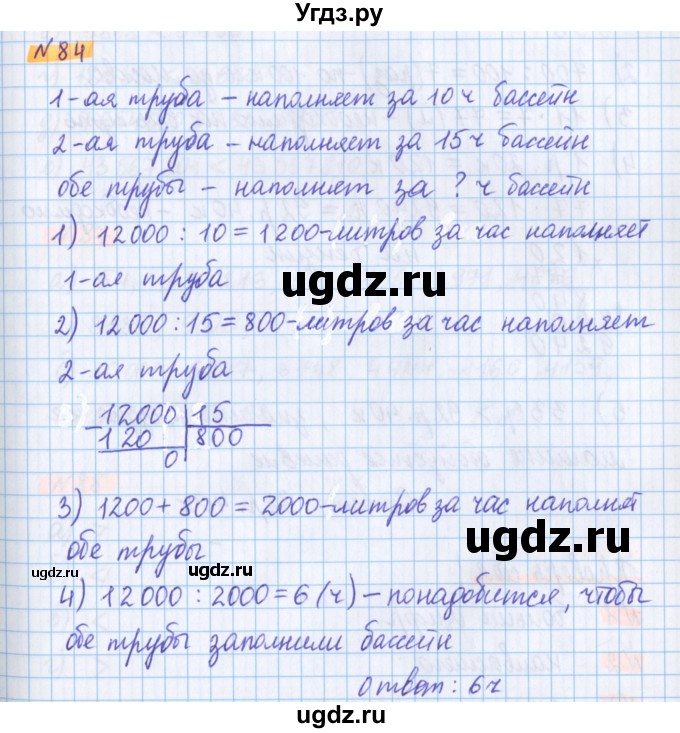 Угдз.ру
№ 84
1-ая труба – наполняет за 10ч бассейн
2-ая труба – наполняет за 15ч бассейн
обе трубы – наполняет за ? ч бассейн
1) 12000 : 10 = 1200-литров за час наполняет
1-ая труба
ugdz.ru
2) 12000 : 15 = 800-литров за час наполняет
2-ая труба
12000 15
120 800
0
ugdz.ru
3) 1200 + 800 = 2000-литров за час наполнят
обе трубы
ugdz.ru
ugdz.ru
4) 12000 : 2000 = 6 (ч) – понадобится, чтобы
обе трубы заполнили бассейн
Ответ: 6ч
ugdz.ru